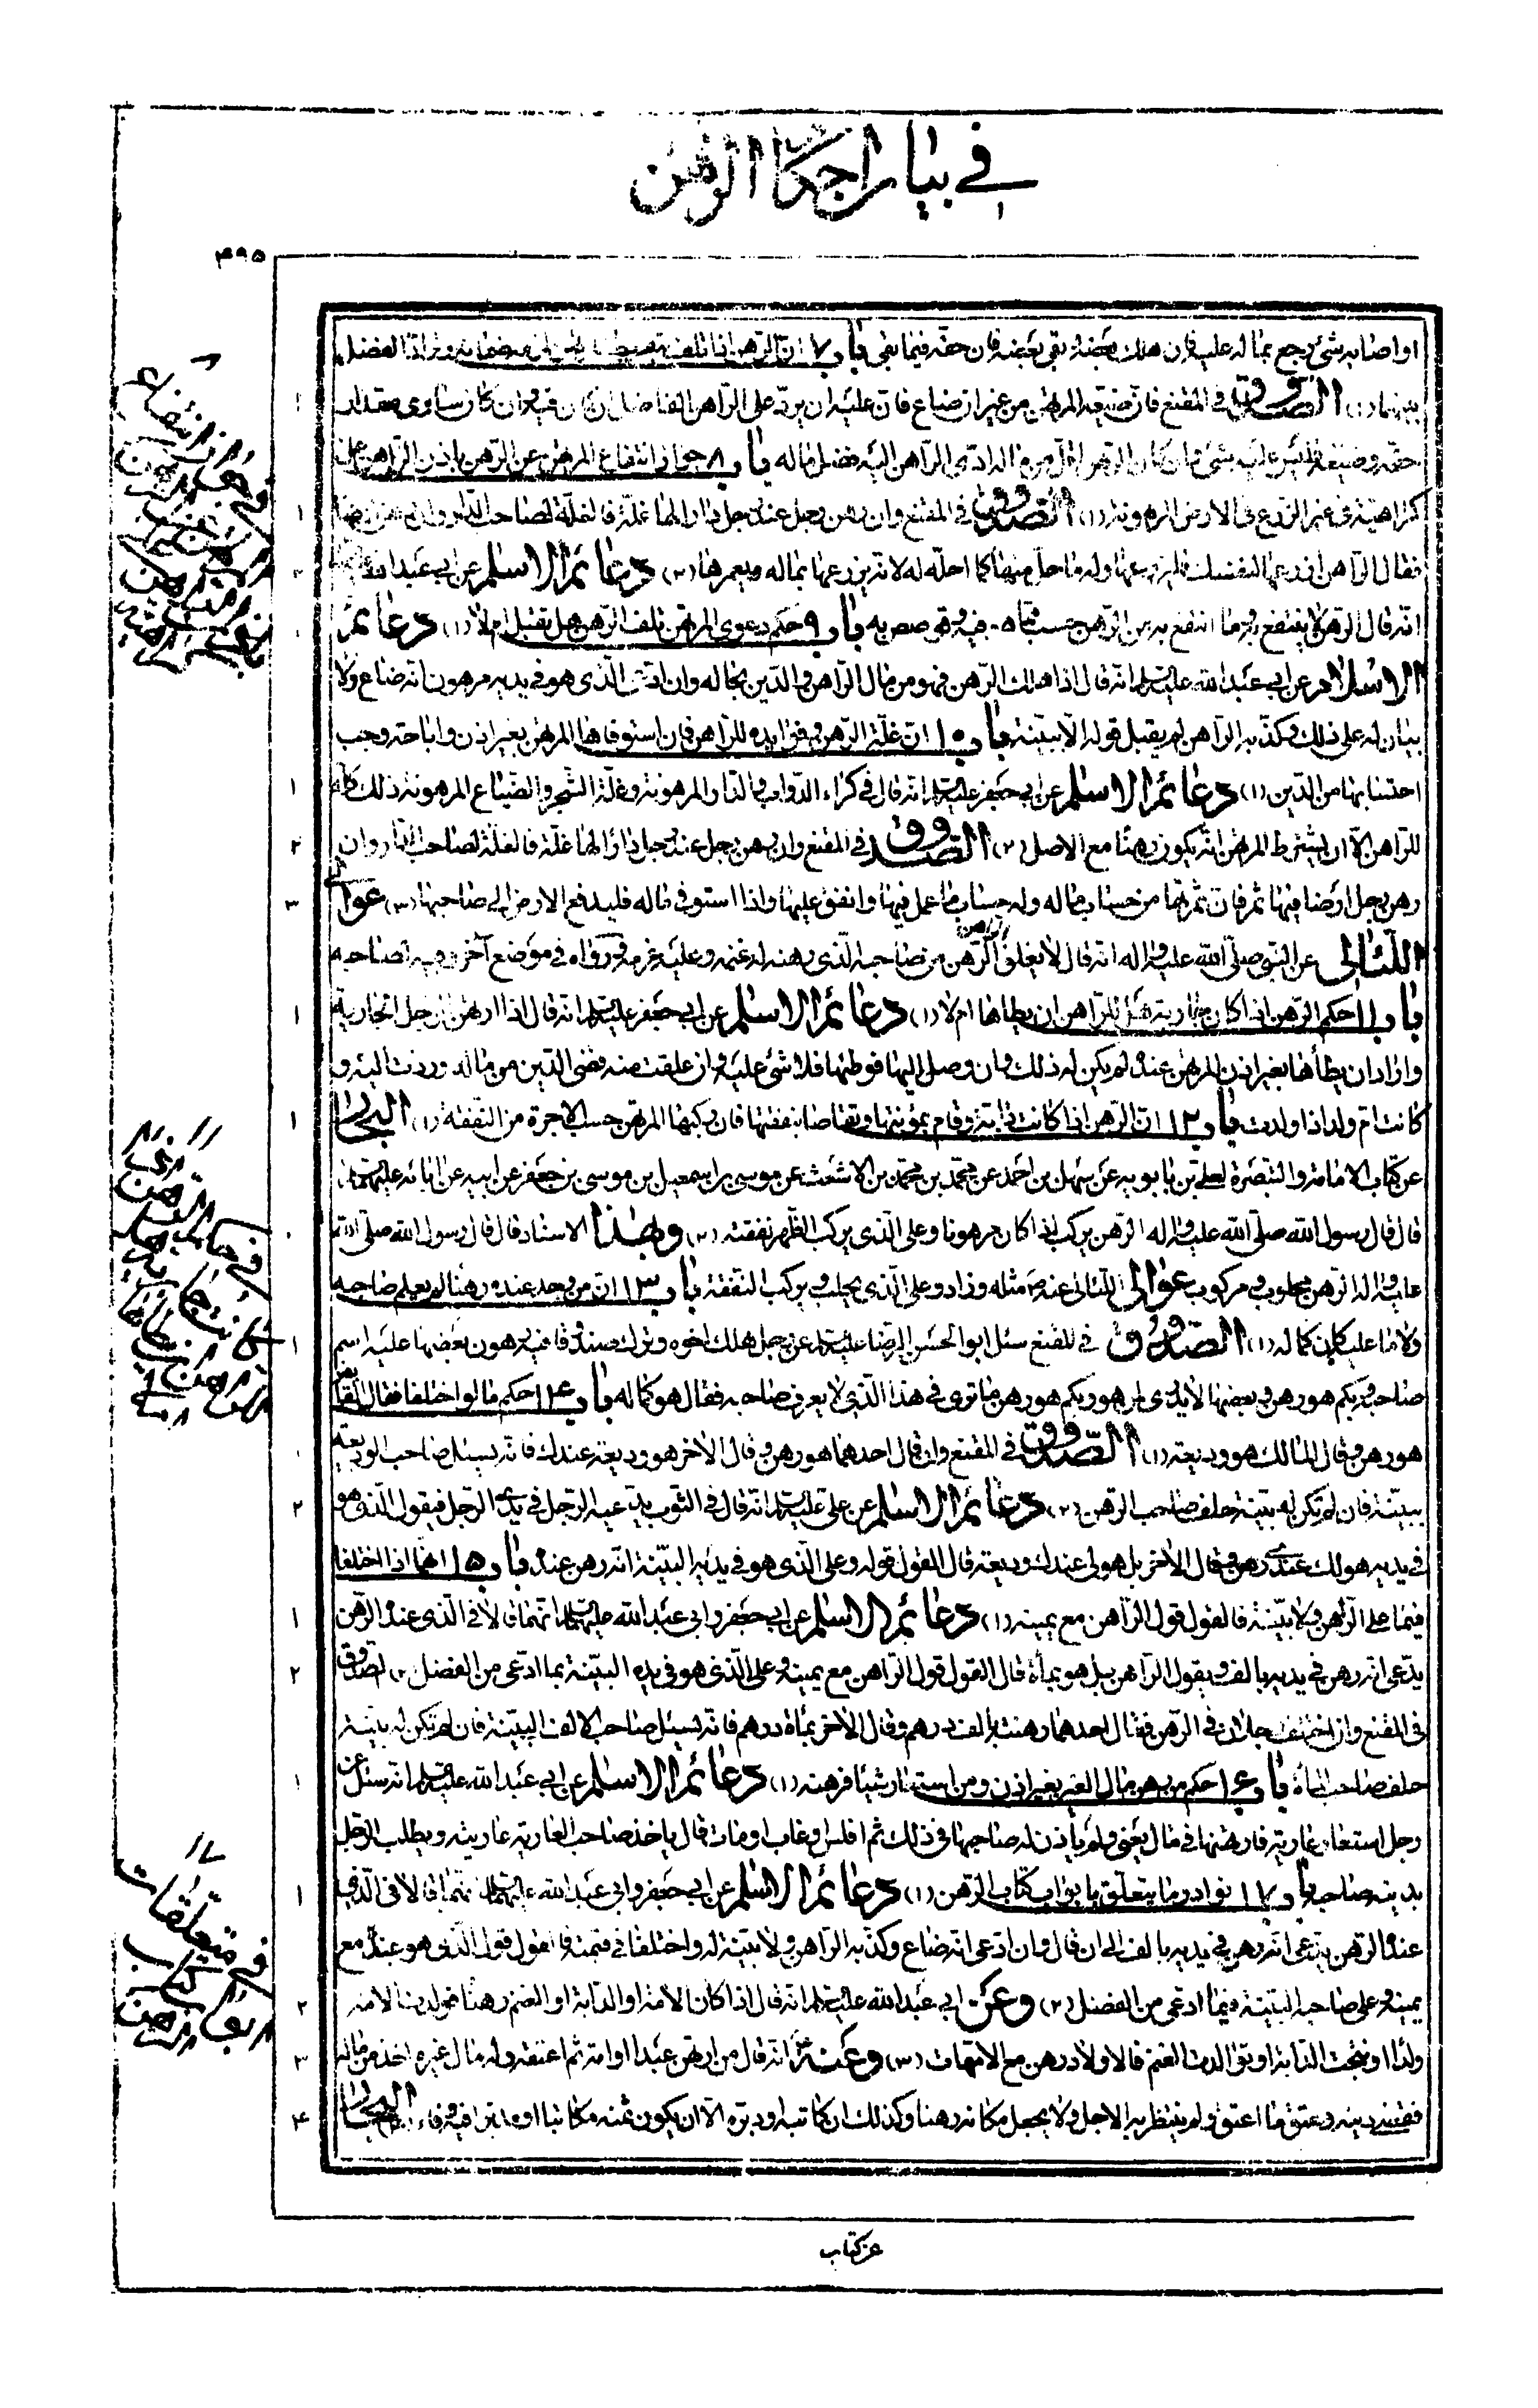 في بيان احكام الرهن
۴۹۵
او اصابه شئ رجع بماله عليه فان هلك بعضه وبقى بعضه فان حقه فيما بقى باب ٧ ان الرهن اذا تلف بتفريط
بينهما (١) الصدوق في المقنع فان ضيعه المرتهن من غير ان ضاع فان عليه ان يرد على الراهن الفاضل ان كان فيه وان كان ساوى مقدار
حقه وضيعه فليس عليه شئ وان كان الرهن اقل من ماله ادى الراهن اليه فضل ماله باب ٨ جواز انتفاع المرتهن من الرهن باذن الراهن على
كراهية في غير الزرع في الارض المرهونة (١) الصدوق في المقنع وان رهن رجل عند رجل دارا لها غلة فالغلة لصاحب الدار وان رهن ارضا
فقال الراهن ازرعها لنفسك فليزرعها وله ما حل منها كما احله له لانه يزرعها بماله ويعمرها (٢) دعائم الاسلام عن ابي عبد الله
انه قال الرهن لا ينتفع به وما انتفع به من الرهن حسب مما هو فيه وقوصص به باب ٩ حكم دعوى المرتهن تلف الرهن هل تقبل ام لا (١) دعائم
الاسلام عن ابي عبد الله عليه السلام انه قال اذا هلك الرهن فهو من مال الراهن والدين بحاله وان ادعى الذي هو في يديه مرهون انه ضاع ولا
بيان له على ذلك وكذبه الراهن لم يقبل قوله الا ببينة باب ١٠ ان غلة الرهن وفوايده للراهن فان استوفاها المرتهن بغير اذن واباحة وجب
احتسابها من الدين (١) دعائم الاسلام عن ابي جعفر عليه السلام انه قال في كراء الدواب والدار المرهونة وغلة الشجر والضياع المرهونة ذلك كله
للراهن الا ان يشترط المرتهن انه يكون رهنا مع الاصل (٢) الصدوق في المقنع وان رهن رجل عند رجل دارا لها غلة فالغلة لصاحب الدار وان
رهن رجل ارضا فيها ثمر فان ثمرتها من حساب ماله وله حساب ما عمل فيها وانفق عليها واذا استوفى ماله فليدفع الارض الى صاحبها (٣) عوالى
اللئالى عن النبي صلى الله عليه واله انه قال لا يغلق الرهن من صاحبه الذي رهنه له غنمه وعليه غرمه ورواه في موضع آخر وفيه لصاحبه
باب ١١ حكم الرهن اذا كان جارية هل للراهن ان يطأها ام لا (١) دعائم الاسلام عن ابي جعفر عليه السلام انه قال اذا ارتهن الرجل الجارية
واراد ان يطأها بغير اذن المرتهن عنده لم يكن له ذلك وان وصل اليها فوطئها فلا شئ عليه وان علقت منه قضى الدين من ماله وردت اليه و
كانت ام ولد اذا ولدت باب ١٢ ان الرهن اذا كانت دابة وقام بمؤنتها وتقاصا بنفقتها فان ركبها المرتهن حسب الاجرة من النفقة (١) البحار
عن كتاب الامامة والتبصرة لعلي بن بابويه عن سهل بن احمد عن محمد بن محمد بن الاشعث عن موسى بن اسمعيل بن موسى بن جعفر عن ابيه عن ابائه عليهم السلام
قال قال رسول الله صلى الله عليه واله الرهن يركب اذا كان مرهونا وعلى الذي يركب الظهر نفقته (٢) وبهذا الاسناد قال قال رسول الله صلى الله
عليه واله الرهن محلوب ومركوب عوالى اللئالى عنه ص مثله وزاد وعلى الذي يحلب ويركب النفقة باب ١٣ ان من وجد عنده رهنا لم يعلم صاحبه
ولا ما عليه كان كماله (١) الصدوق في المقنع سئل ابو الحسن الرضا عليه السلام عن رجل هلك اخوه وترك صندوقا فيه رهون بعضها عليه اسم
صاحبه وبكم هو رهن وبعضها لا يدرى لمن هو وبكم هو رهن ما ترى في هذا الذي لا يعرف صاحبه فقال هو كماله باب ١٤ حكم ما لو اختلفا فقال القابض
هو رهن وقال المالك هو وديعة (١) الصدوق في المقنع وان قال احدهما هو رهن وقال الآخر هو وديعة عندك فانه يسئل صاحب الوديعة
ببينة فان لم تكن له بينة حلف صاحب الرهن (٢) دعائم الاسلام عن علي عليه السلام انه قال في الثوب يدعيه الرجل في يدى الرجل فيقول الذي هو
في يديه هو لك عندى رهن وقال الآخر بل هو لى عندك وديعة قال القول قوله وعلى الذي هو في يديه البينة انه رهن عنده باب ١٥ انهما اذا اختلفا
فيما على الرهن ولا بينة فالقول قول الراهن مع يمينه (١) دعائم الاسلام عن ابي جعفر وابي عبد الله عليهما السلام انهما قالا في الذي عنده الرهن
يدعى انه رهن في يديه بالف ويقول الراهن بل هو بمأة قال القول قول الراهن مع يمينه وعلى الذي هو في يده البينة بما ادعى من الفضل ٢) الصدوق
في المقنع وان اختلف رجلان في الرهن فقال احدهما رهنته بالف درهم وقال الآخر بمأة درهم فانه يسئل صاحب الالف البينة فان لم تكن له بينة
حلف صاحب المأة باب ١٦ حكم من رهن مال الغير بغير اذن ومن استعار شيئا فرهنه (١) دعائم الاسلام عن ابي عبد الله عليه السلام انه سئل عن
رجل استعار عارية فارتهنها في مال يعنى ولم ياذن له صاحبها في ذلك ثم افلس او غاب او مات قال ياخذ صاحب العارية عاريته ويطلب الرجل
بدينه صاحبه باب ١٧ نوادر ما يتعلق بابواب كتاب الرهن (١) دعائم الاسلام عن ابي جعفر وابي عبد الله عليهما السلام انهما قالا في الذي
عنده الرهن يدعى انه رهن في يديه بالف الى ان قال وان ادعى انه ضاع وكذبه الراهن ولا بينة له واختلفا في قيمته فالقول قول الذي هو عنده مع
يمينه وعلى صاحبه البينة فيما ادعى من الفضل (٢) وعن ابي عبد الله عليه السلام انه قال اذا كان الامة او الدابة او الغنم رهنا فولدت الامة
ولدا او نتجت الدابة او توالدت الغنم فالاولاد رهن مع الامهات (٣) وعنه انه قال من ارتهن عبدا او امة ثم اعتقه وله مال غيره اخذ من ماله
فقضى دينه وعتق ما اعتق ولم ينتظر به الاجل ولا يجعل مكانه رهنا وكذلك ان كاتبه او دبره الا ان يكون ثمنه مكاتبا او مدبرا فيه وفاء البحار
عن كتاب
في متعلقات
كتاب
الرهن